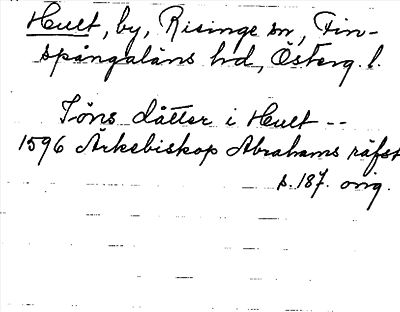 Hult, by, Risinge sn, Fin-
spångaläns hd, Österg. l.
Jöns dåtter i Hult --
1596 Ärkebiskop Abrahams räfst
s. 187. orig.